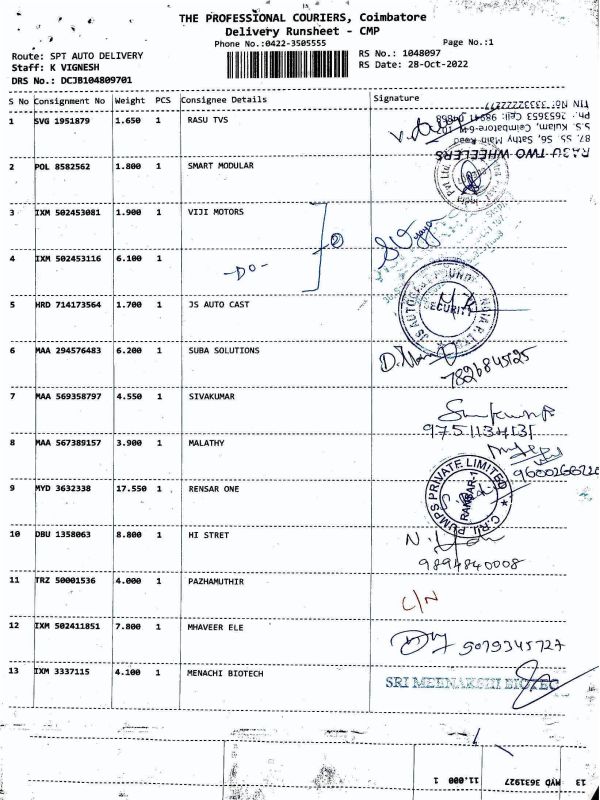 THE PROFESSIONAL COURIERS, Coimbatore
Delivery Runsheet - CMP
Phone No.:0422-3505555
Page No.:1
Route: SPT AUTO DELIVERY
Staff: K VIGNESH
DRS No.: DCJB104809701
RS No.: 1048097
RS Date: 28-Oct-2022
S No Consignment No Weight PCS Consignee Details Signature
1 SVG 1951879 1.650 1 RASU TVS
TIN No: 33332222277
Ph: 2653653 Cell: 98941
S.S. Kulam, Coimbatore-641 107
87, 55, 56, Sathy Main Road
RASU TWO WHEELERS
2 POL 8582562 1.800 1 SMART MODULAR
3 IXM 502453081 1.900 1 VIJI MOTORS
2
4 IXM 502453116 6.100 1 -DO-
5 HRD 714173564 1.700 1 JS AUTO CAST
SECURITY
6 MAA 294576483 6.200 1 SUBA SOLUTIONS
7826845125
7 MAA 569358797 4.550 1 SIVAKUMAR
9751134131
8 MAA 567389157 3.900 1 MALATHY
9 MYD 3632338 17.550 1 RENSAR ONE
C.R.I. PUMPS PRIVATE LIMITED
10 DBU 1358063 8.800 1 HI STRET
9894840008
11 TRZ 50001536 4.000 1 PAZHAMUTHIR
C/N
12 IXM 502411851 7.800 1 MHAVEER ELE
9079345727
13 IXM 3337115 4.100 1 MENACHI BIOTECH
SRI MEENAKSHI BIOTEC
13 MYD 3631927 11.000 1